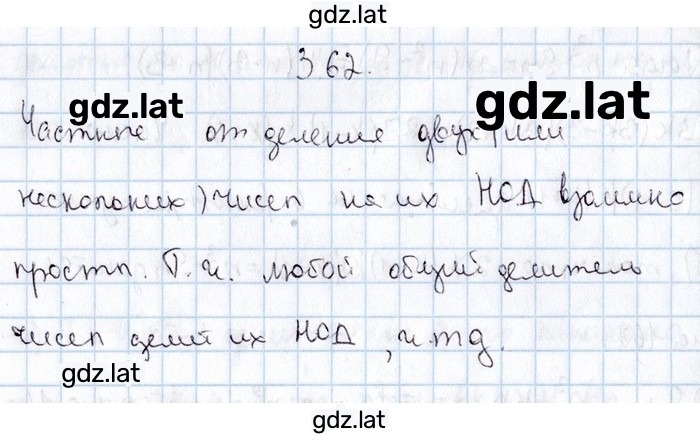 gdz.lat
362.
gdz.lat
gdz.lat
Частные от деления двух (или
нескольких) чисел на их НОД взаимно
просты. Т.к. любой общий делитель
чисел делит их НОД, ч.тд.
gdz.lat
gdz.lat